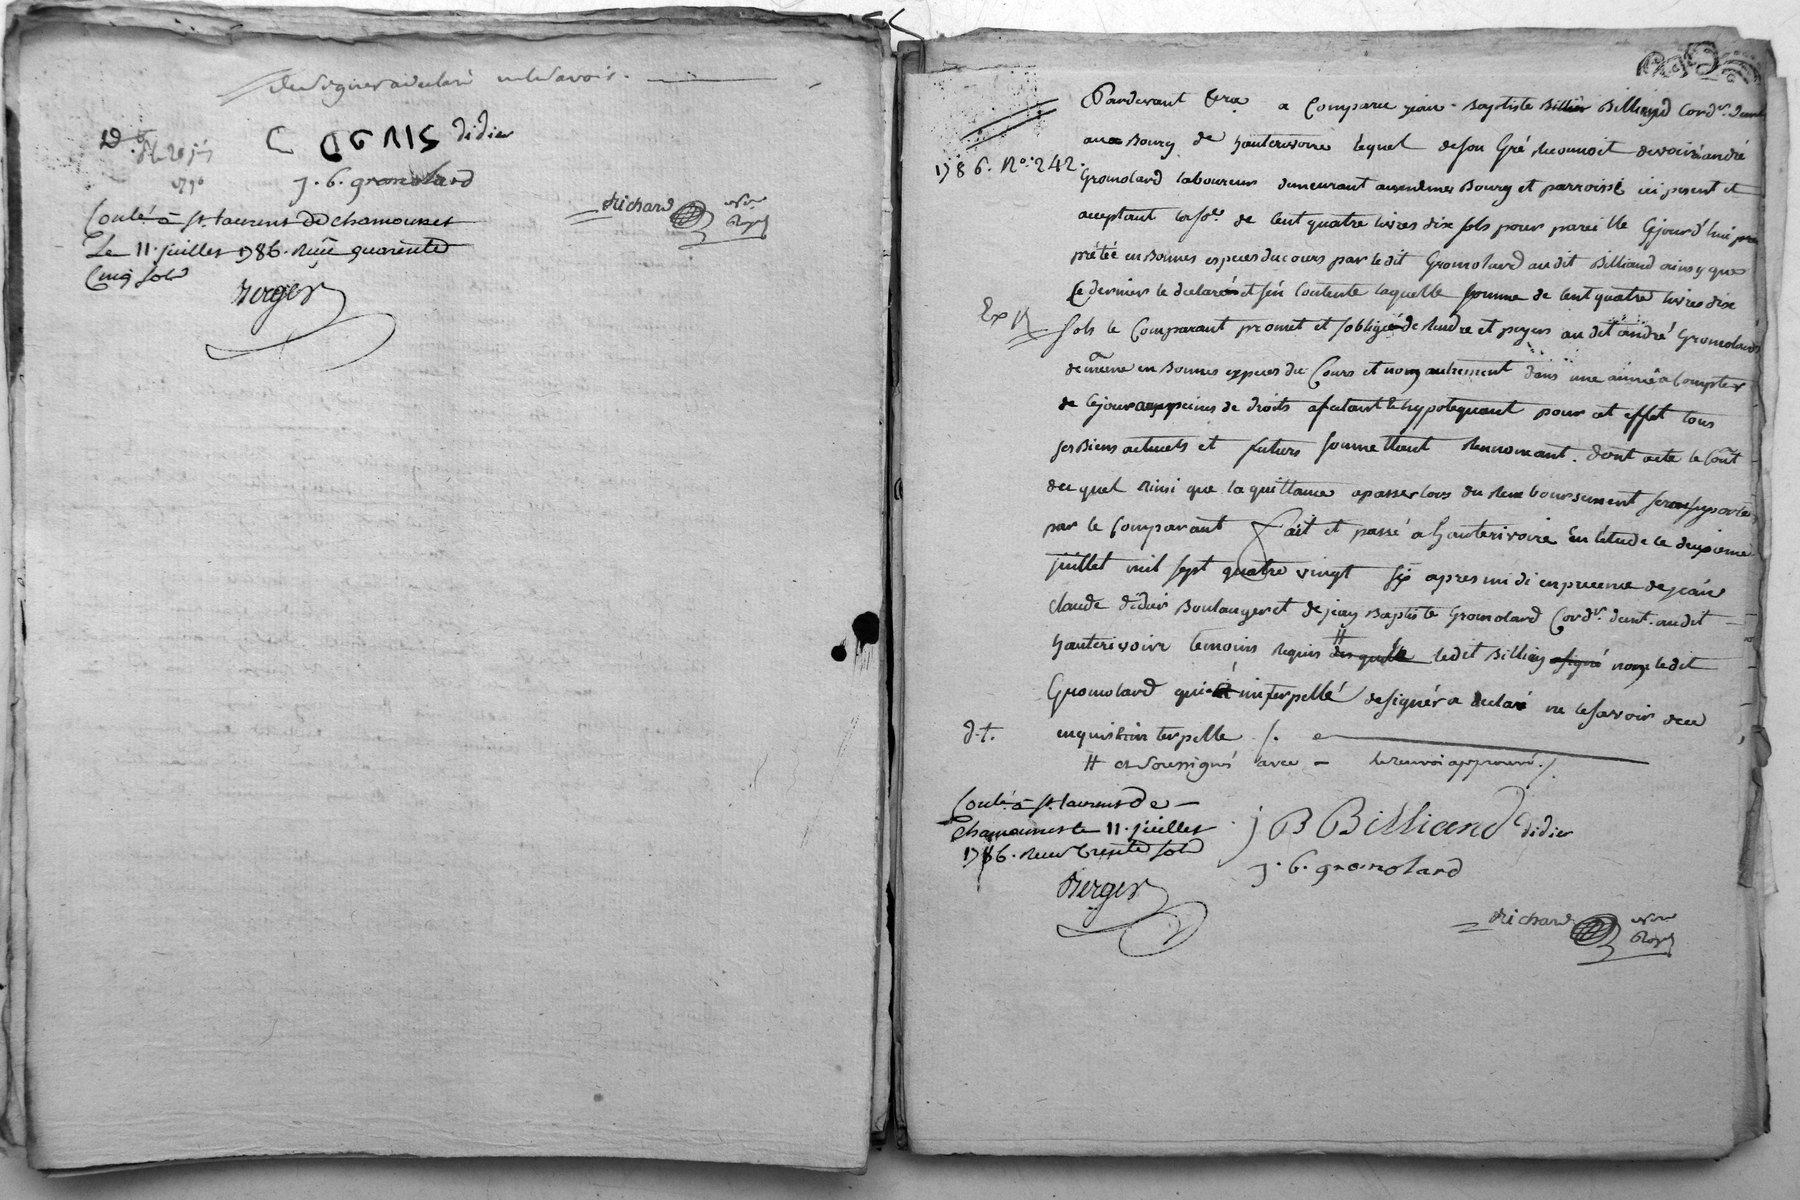 de signer a declaré ne le savoir.
C DGNIS didier
J. b. gromolard
Conlé à st. laurent de chamousset
Le 11. juillet 1786. Reçu quarente
Cinq sols
Berger
Richard nore Royal
Pardevant &ra a Comparu jean-Baptiste Billiand Cordr. demt
au Bourg de hauterivoire lequel de son Gré Reconnoit devoir a andré
1786. No. 242.
Gromolard laboureur demeurant au même Bourg et parroisse ici present et
acceptant la so.e de Cent quatre livres dix sols pour pareille Cejourd'hui
prêtée en Bonnes especes du cours par ledit Gromolard audit Billiand ainsy que
Ce dernier le declare et s'en Contente laquelle somme de Cent quatre livres dix
sols le Comparant promet et s'oblige de Rendre et payer audit andré Gromolard
de même en Bonnes especes du Cours et non autrement dans une année a Compter
de Cejour aux peines de droits afectant & hypotequant pour cet effet tous
ses Biens actuels et futurs soumettant Renonçant. dont acte le Coût
duquel Ainsi que la quittance a passer lors du Remboursement seront suportés
par le Comparant fait et passé a hauterivoire En l'étude le deuxieme
juillet mil sept quatre vingt six apres midi en presence de jean
Claude didier Boulanger et de jean Baptiste Gromolard Cordr. demt. audit
hauterivoire temoins Requis # ledit Billiand non ledit
Gromolard qui interpellé de signer a declaré ne le savoir de ce
enquis & interpellé ./.
d.t.
# et soussignés avec - le renvoi approuvé ./.
Conlé. à st. laurent de
Chamousset le 11. juillet
1786. Reçu trente sols
Berger
j B Billiand didier
J. b. gromolard
Richard nore Royal